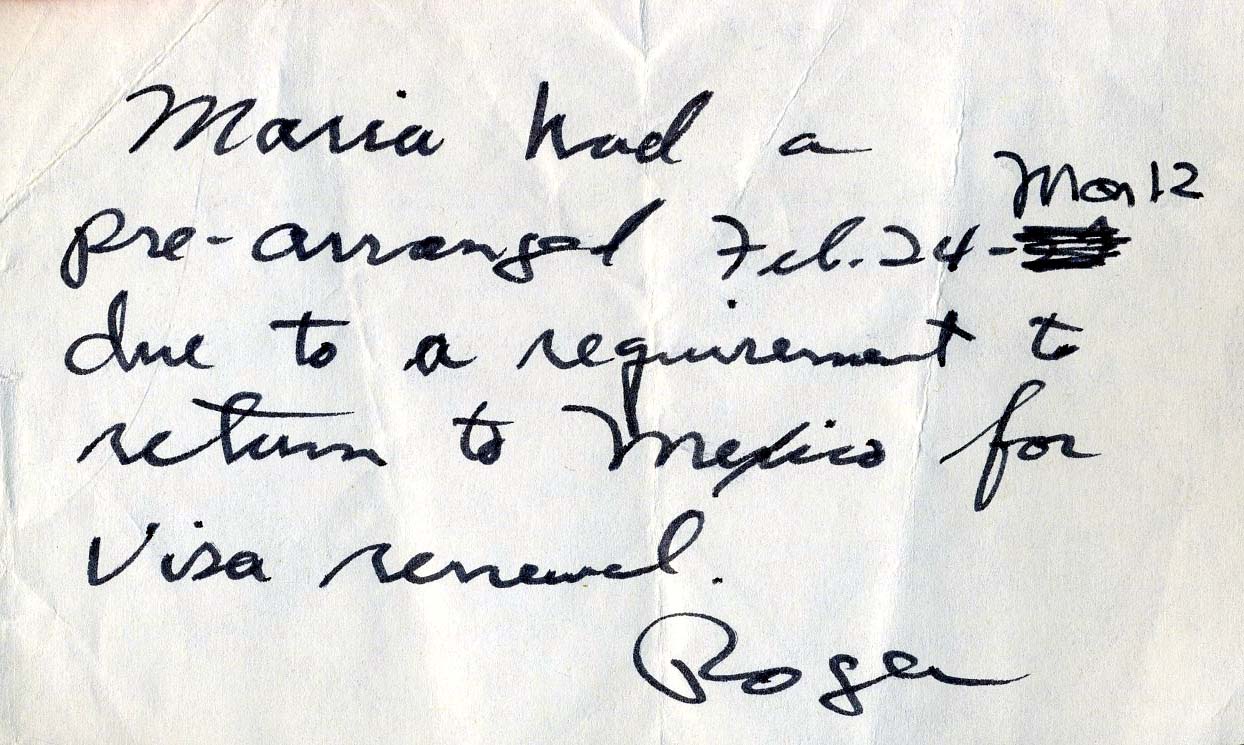 Maria had a
pre-arranged Feb. 24 - Mar 12
due to a requirement to
return to Mexico for
Visa renewal.
Roger